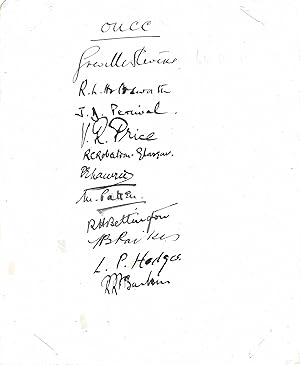 OUCC
Greville Stevens
R.L. Holdsworth
J.D. Percival.
V.R. Price
R.C. Robertson-Glasgow.
P.H. Lawrie
M. Patten.
R.H. Bettington
B Raikes
L. P. Hedges